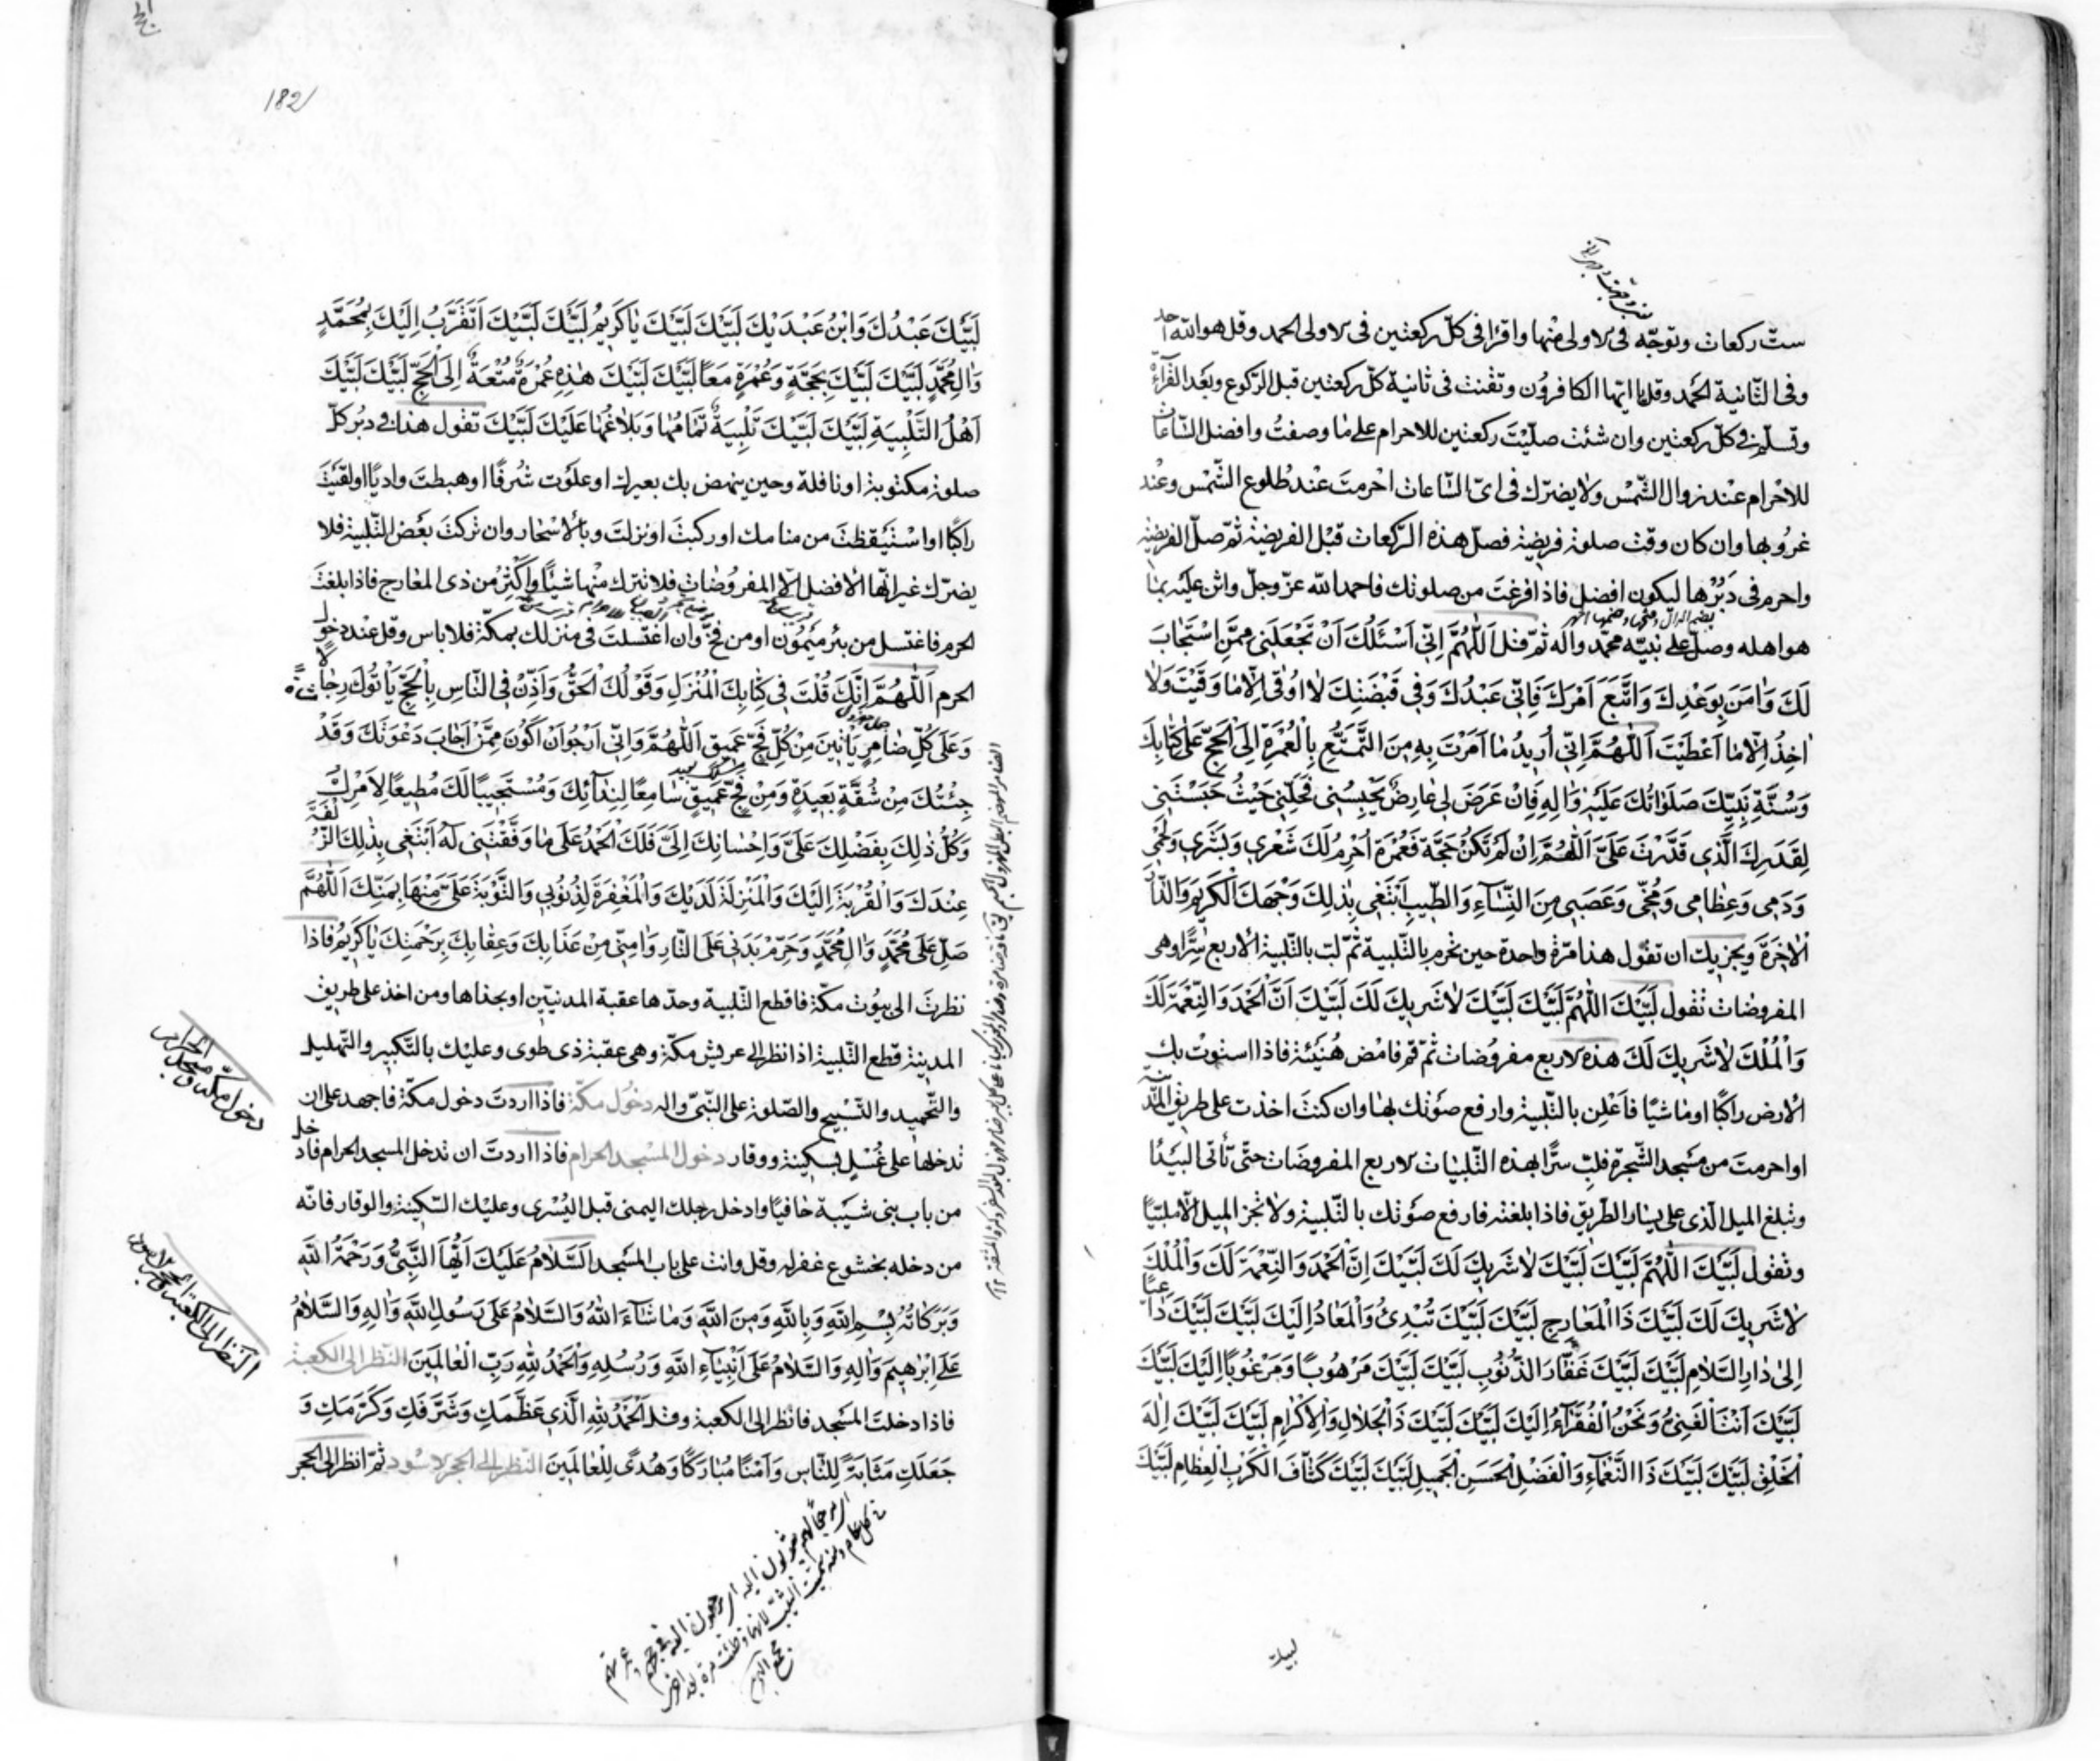 ستّ ركعات وتوجّه فى الاولى منها واقرا فى كلّ ركعتين فى الاولى الحمد وقل هو الله احد
وفى الثّانية الحمد وقل يا ايّها الكافرون وتقنت فى ثانية كلّ ركعتين قبل الرّكوع وبعد القرآءة
وتسلّم فى كلّ ركعتين وان شئت صلّيت ركعتين للاحرام على ما وصفت وافضل السّاعات
للاحرام عند زوال الشّمس ولا يضرّك فى اىّ السّاعات احرمت عند طلوع الشّمس وعند
غروبها وان كان وقت صلوة فريضة فصلّ هذه الرّكعات قبل الفريضة ثمّ صلّ الفريضة
واحرم فى دبُرها ليكون افضل فاذا فرغت من صلوتك فاحمد الله عزّ وجلّ واثن عليه بما
هو اهله وصلّ على نبيّه محمّد واله ثمّ قل اَللّٰهُمَّ اِنّى اَسْئَلُكَ اَنْ تَجْعَلَنى مِمَّنِ اسْتَجٰابَ
لَكَ وَاٰمَنَ بِوَعْدِكَ وَاتَّبَعَ اَمْرَكَ فَاِنّى عَبْدُكَ وَفى قَبْضَتِكَ لاٰ اُوقٰى اِلّاٰ مٰا وَقَيْتَ وَلاٰ
اٰخِذُ اِلّاٰ مٰا اَعْطَيْتَ اَللّٰهُمَّ اِنّى اُريدُ مٰا اَمَرْتَ بِهِ مِنَ التَّمَتُّعِ بِالْعُمْرَةِ اِلَى الْحَجِّ عَلىٰ كِتٰابِكَ
وَسُنَّةِ نَبِيِّكَ صَلَوٰاتُكَ عَلَيْهِ وَاٰلِهِ فَاِنْ عَرَضَ لى عٰارِضٌ يَحْبِسُنى فَحُلَّنى حَيْثُ حَبَسْتَنى
لِقَدَرِكَ الَّذى قَدَّرْتَ عَلَىَّ اَللّٰهُمَّ اِنْ لَمْ تَكُنْ حَجَّةً فَعُمْرَةً اُحْرِمُ لَكَ شَعْرى وَبَشَرى وَلَحْمى
وَدَمى وَعِظٰامى وَمُخّى وَعَصَبى مِنَ النِّسٰاءِ وَالطّيبِ اَبْتَغى بِذٰلِكَ وَجْهَكَ الْكَريمَ وَالدّٰارَ
الْاٰخِرَةَ ويجزيك ان تقول هذا مرّة واحدة حين تحرم بالتّلبية ثمّ لبّ بالتّلبية الاربع سرًّا وهى
المفروضات تقول لَبَّيْكَ اللّٰهُمَّ لَبَّيْكَ لَبَّيْكَ لاٰ شَريكَ لَكَ لَبَّيْكَ اَنَّ الْحَمْدَ وَالنِّعْمَةَ لَكَ
وَالْمُلْكَ لاٰ شَريكَ لَكَ هذه الاربع مفروضات ثمّ قم فامض هُنَيْئَة فاذا استوت بك
الارض راكبًا او ماشيًا فاَعْلِن بالتّلبية وارفع صوتك بها وان كنت اخذت على طريق المدينة
او احرمت من مسجد الشّجرة فلبّ سرًّا بهذه التّلبيات الاربع المفروضات حتّى تأتى البَيْدٰا
وتبلغ الميل الّذى على يسار الطّريق فاذا بلغته فارفع صوتك بالتّلبية ولا تجز الميل الّا ملبّيًا
وتقول لَبَّيْكَ اللّٰهُمَّ لَبَّيْكَ لَبَّيْكَ لاٰ شَريكَ لَكَ لَبَّيْكَ اِنَّ الْحَمْدَ وَالنِّعْمَةَ لَكَ وَالْمُلْكَ
لاٰ شَريكَ لَكَ لَبَّيْكَ ذَا الْمَعٰارِجِ لَبَّيْكَ لَبَّيْكَ تُبْدِئُ وَالْمَعٰادُ اِلَيْكَ لَبَّيْكَ لَبَّيْكَ دٰاعِيًا
اِلىٰ دٰارِ السَّلاٰمِ لَبَّيْكَ لَبَّيْكَ غَفّٰارَ الذُّنُوبِ لَبَّيْكَ لَبَّيْكَ مَرْهُوبًا وَمَرْغُوبًا اِلَيْكَ لَبَّيْكَ
لَبَّيْكَ اَنْتَ الْغَنِىُّ وَنَحْنُ الْفُقَرٰآءُ اِلَيْكَ لَبَّيْكَ لَبَّيْكَ ذَا الْجَلاٰلِ وَالْاِكْرٰامِ لَبَّيْكَ لَبَّيْكَ اِلٰهَ
الْخَلْقِ لَبَّيْكَ لَبَّيْكَ ذَا النَّعْمٰاءِ وَالْفَضْلِ الْحَسَنِ الْجَميلِ لَبَّيْكَ لَبَّيْكَ كَشّٰافَ الْكُرَبِ الْعِظٰامِ لَبَّيْكَ
لبيك
182
لَبَّيْكَ عَبْدُكَ وَابْنُ عَبْدَيْكَ لَبَّيْكَ لَبَّيْكَ يٰا كَريمُ لَبَّيْكَ لَبَّيْكَ اَتَقَرَّبُ اِلَيْكَ بِمُحَمَّدٍ
وَاٰلِ مُحَمَّدٍ لَبَّيْكَ لَبَّيْكَ بِحَجَّةٍ وَعُمْرَةٍ مَعًا لَبَّيْكَ لَبَّيْكَ هٰذِهِ عُمْرَةُ مُتْعَةٍ اِلَى الْحَجِّ لَبَّيْكَ لَبَّيْكَ
اَهْلَ التَّلْبِيَةِ لَبَّيْكَ لَبَّيْكَ تَلْبِيَةً تَمٰامُهٰا وَبَلاٰغُهٰا عَلَيْكَ لَبَّيْكَ تقول هذا فى دبُر كلّ
صلوة مكتوبة او نافلة وحين ينهض بك بعيرك او علوت شُرفًا او هبطت واديًا او لقيت
راكبًا او استيقظت من منامك او ركبت او نزلت وبالاسحار وان تركت بعض التّلبية فلا
يضرّك غير انّها الافضل الّا المفروضات فلا تترك منها شيئًا واكثر من ذى المعارج فاذا بلغت
الحرم فاغتسل من بئر ميمون او من فخّ وان اغتسلت فى منزلك بمكّة فلا باس وقل عند دخول
الحرم اَللّٰهُمَّ اِنَّكَ قُلْتَ فى كِتٰابِكَ الْمُنْزَلِ وَقَوْلُكَ الْحَقُّ وَاَذِّنْ فِى النّٰاسِ بِالْحَجِّ يَأْتُوكَ رِجٰالًا
وَعَلىٰ كُلِّ ضٰامِرٍ يَأْتينَ مِنْ كُلِّ فَجٍّ عَميقٍ اَللّٰهُمَّ وَاِنّى اَرْجُو اَنْ اَكُونَ مِمَّنْ اَجٰابَ دَعْوَتَكَ وَقَدْ
جِئْتُكَ مِنْ شُقَّةٍ بَعيدَةٍ وَمِنْ فَجٍّ عَميقٍ سٰامِعًا لِنِدٰآئِكَ وَمُسْتَجيبًا لَكَ مُطيعًا لِاَمْرِكَ
وَكُلُّ ذٰلِكَ بِفَضْلِكَ عَلَىَّ وَاِحْسٰانِكَ اِلَىَّ فَلَكَ الْحَمْدُ عَلىٰ مٰا وَفَّقْتَنى لَهُ اَبْتَغى بِذٰلِكَ الزُّلْفَةَ
عِنْدَكَ وَالْقُرْبَةَ اِلَيْكَ وَالْمَنْزِلَةَ لَدَيْكَ وَالْمَغْفِرَةَ لِذُنُوبى وَالتَّوْبَةَ عَلَىَّ مِنْهٰا بِمَنِّكَ اَللّٰهُمَّ
صَلِّ عَلىٰ مُحَمَّدٍ وَاٰلِ مُحَمَّدٍ وَحَرِّمْ بَدَنى عَلَى النّٰارِ وَاٰمِنّى مِنْ عَذٰابِكَ وَعِقٰابِكَ بِرَحْمَتِكَ يٰا كَريمُ فاذا
نظرت الى بيوت مكّة فاقطع التّلبية وحدّها عقبة المدنيّين او بحذاها ومن اخذ على طريق
المدينة قطع التّلبية اذا نظر الى عريش مكّة وهى عقبة ذى طوى وعليك بالتّكبير والتّهليل
والتّحميد والتّسبيح والصّلوة على النّبىّ واله دخول مكّة فاذا اردت دخول مكّة فاجهد على ان
تدخلها على غُسْلٍ بسكينة ووقار دخول المسجد الحرام فاذا اردت ان تدخل المسجد الحرام فادخل
من باب بنى شيبة حافيًا وادخل رجلك اليمنى قبل اليُسْرى وعليك السّكينة والوقار فانّه
من دخله بخشوع غفر له وقل وانت على باب المسجد اَلسَّلاٰمُ عَلَيْكَ اَيُّهَا النَّبِىُّ وَرَحْمَةُ اللّٰهِ
وَبَرَكٰاتُهُ بِسْمِ اللّٰهِ وَبِاللّٰهِ وَمِنَ اللّٰهِ وَمٰا شٰآءَ اللّٰهُ وَالسَّلاٰمُ عَلىٰ رَسُولِ اللّٰهِ وَاٰلِهِ وَالسَّلاٰمُ
عَلىٰ اِبْرٰهيمَ وَاٰلِهِ وَالسَّلاٰمُ عَلىٰ اَنْبِيٰآءِ اللّٰهِ وَرُسُلِهِ وَالْحَمْدُ لِلّٰهِ رَبِّ الْعٰالَمينَ النّظر الى الكعبة
فاذا دخلت المسجد فانظر الى الكعبة وقل اَلْحَمْدُ لِلّٰهِ الَّذى عَظَّمَكِ وَشَرَّفَكِ وَكَرَّمَكِ وَ
جَعَلَكِ مَثٰابَةً لِلنّٰاسِ وَاَمْنًا مُبٰارَكًا وَهُدًى لِلْعٰالَمينَ النّظر الى الحجر الاسود ثمّ انظر الى الحجر
دخول مكّة ومسجد الحرام
النظر الى الكعبة والحجر الاسود